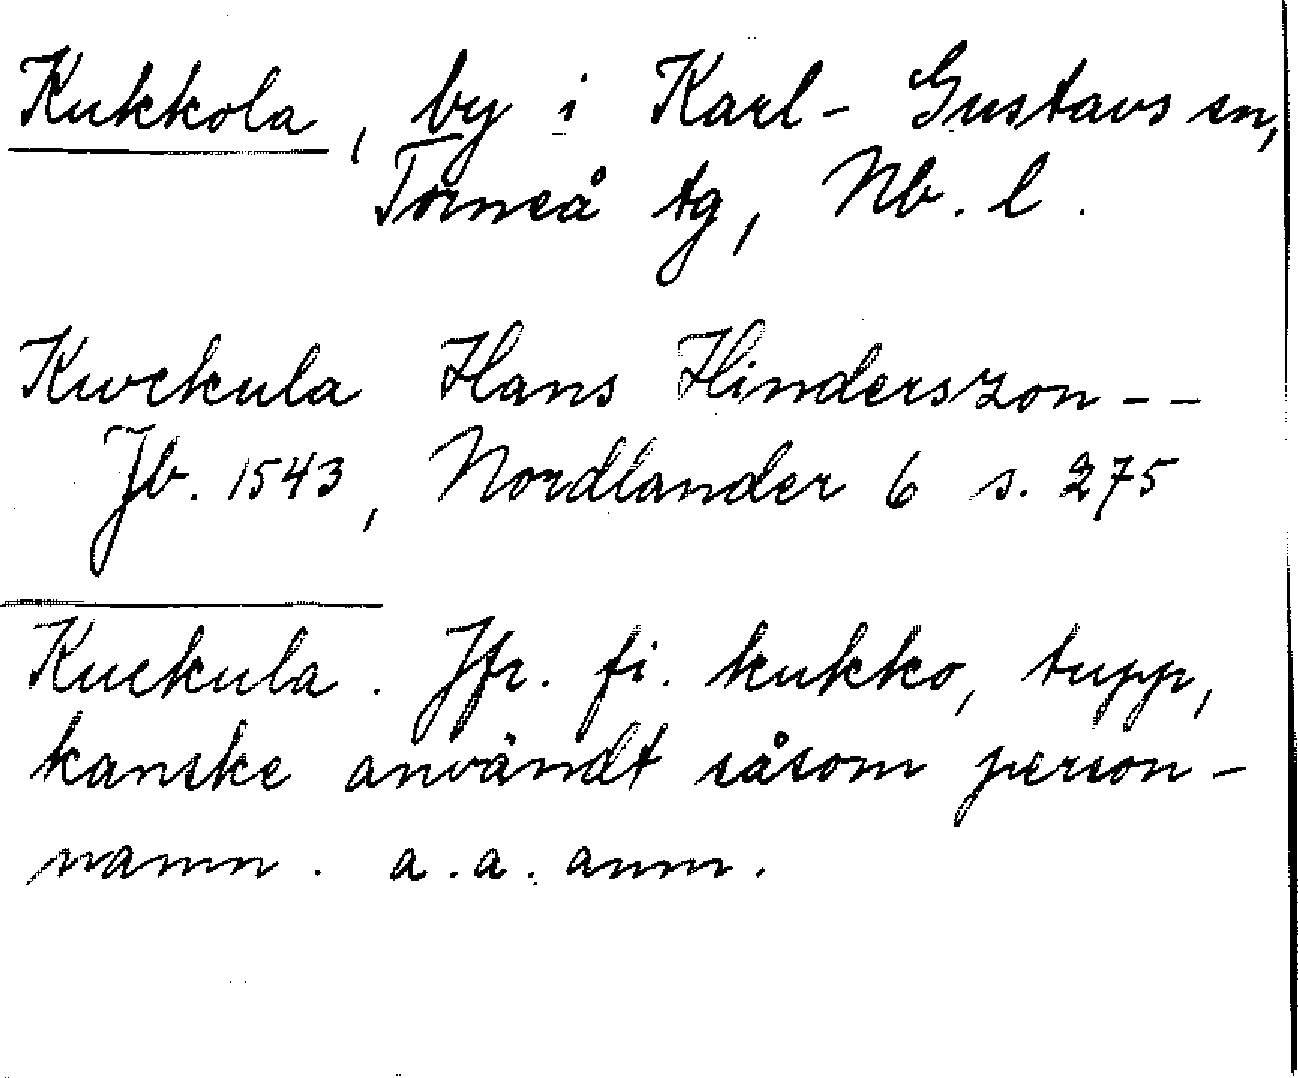 Kukkola, by i Karl-Gustavs sn,
Torneå tg, Nb. l.
Kwckula Hans Hinderszon--
Jb. 1543, Nordlander 6 s. 275
Kuckula. Jfr. fi. kukko, tupp,
kanske användt såsom person-
namn. a.a. anm.